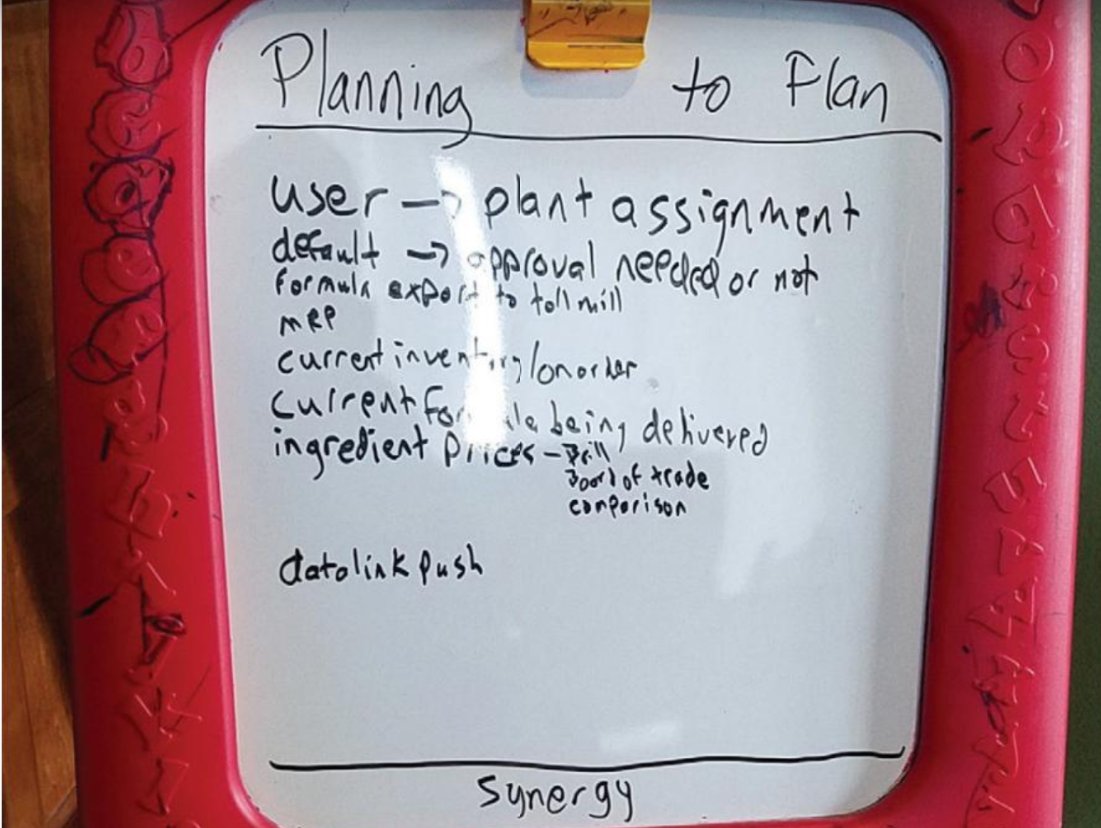 Planning to Plan
user → plant assignment
default → approval needed or not
formula export to toll mill
MRP
current inventory/on order
current formula being delivered
ingredient prices -
Board of trade
comparison
datalink push
Synergy